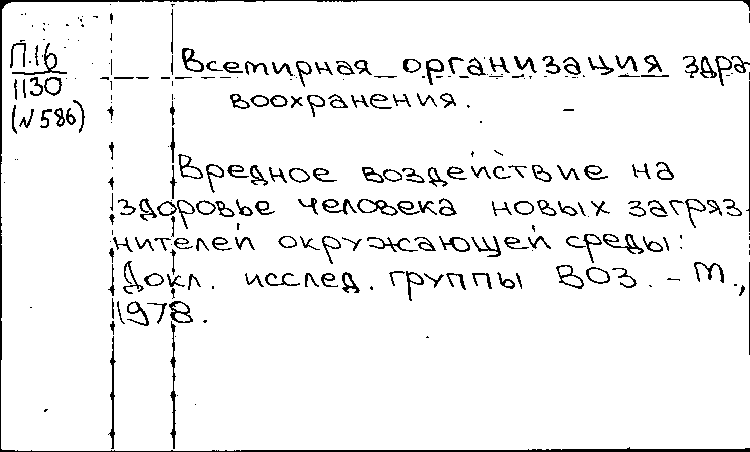 П.16
1130
(N586)
Всемирная организация здра-
воохранения.
Вредное воздействие на
здоровье человека новых загряз-
нителей окружающей среды:
Докл. исслед. группы ВОЗ. - М.,
1978.